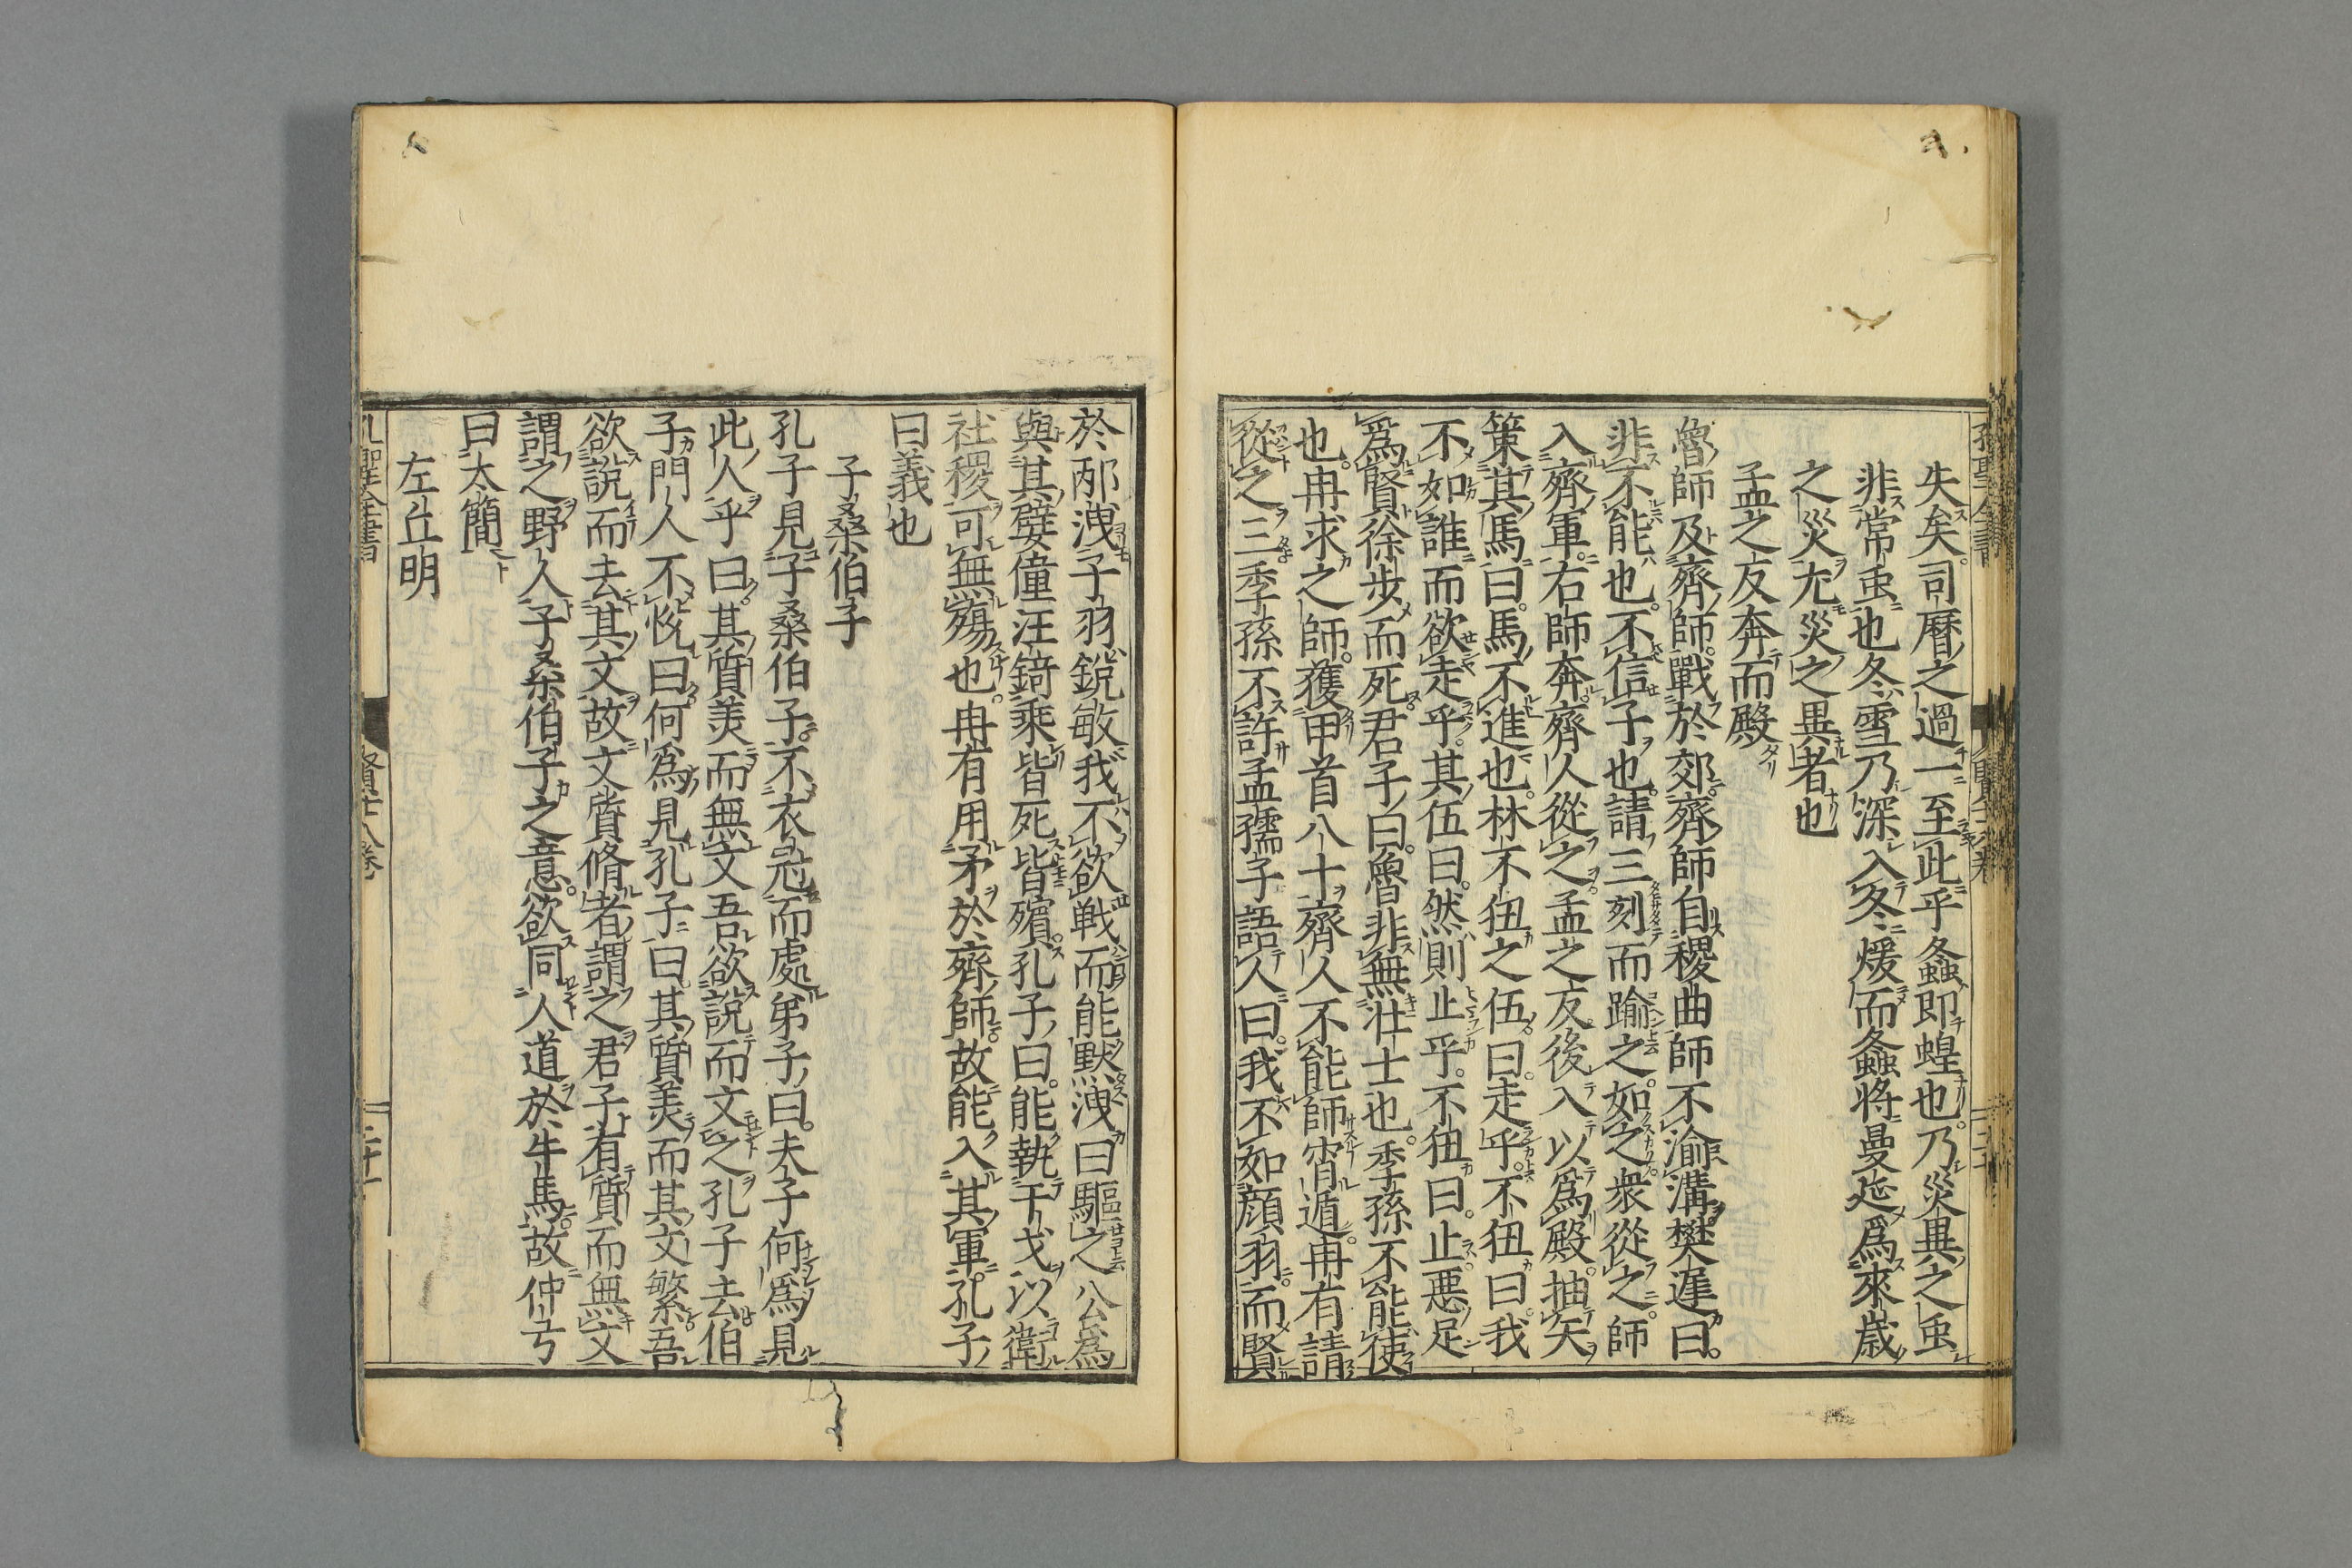 失矣司曆之過一至此乎螽即蝗也乃災異之虫
非常虫也冬雪乃深入冬煖而螽將曼延爲來歲
之災尤災之異者也
孟之反奔而殿
魯師及齊師戰於郊齊師自稷曲師不渝溝樊遲曰
非不能也不信子也請三刻而踰之如之衆從之師
入齊軍右師奔齊人從之孟之反後入以爲殿抽矢
策其馬曰馬不進也林不狃之伍曰走乎不狃曰我
不如誰而欲走乎其伍曰然則止乎不狃曰止惡足
爲賢徐步而死君子曰魯非無壯士也季孫不能使
也冉求之師獲甲首八十齊人不能師宵遁冉有請
從之三季孫不許孟孺子語人曰我不如顔羽而賢
於邴洩子羽銳敏我不欲戦而能默洩曰驅之公爲
與其嬖僮汪錡乘皆死皆殯孔子曰能執干戈以衛
社稷可無殤也冉有用矛於齊師故能入其軍孔子
曰義也
子桑伯子
孔子見子桑伯子不衣冠而處弟子曰夫子何爲見
此人乎曰其質美而無文吾欲說而文之孔子去伯
子門人不悅曰何爲見孔子曰其質美而其文繁吾
欲說而去其文故文質脩者謂之君子有質而無文
謂之野人子桑伯子之意欲同人道於牛馬故仲弓
曰太簡
左丘明
孔聖全書
賢廿八卷
二十一